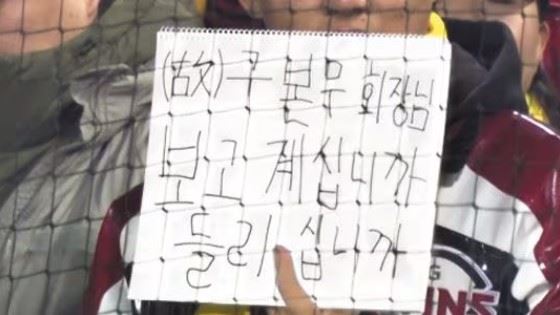 (故)구본무 회장님
보고 계십니까
들리십니까